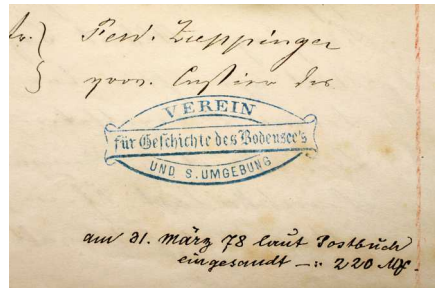 Ferd. Zueppinger
prov. Cassier des
VEREIN
für Geschichte des Bodensee's
UND S. UMGEBUNG
am 31. März 78 laut Postbuch
eingesandt —: 220 M.